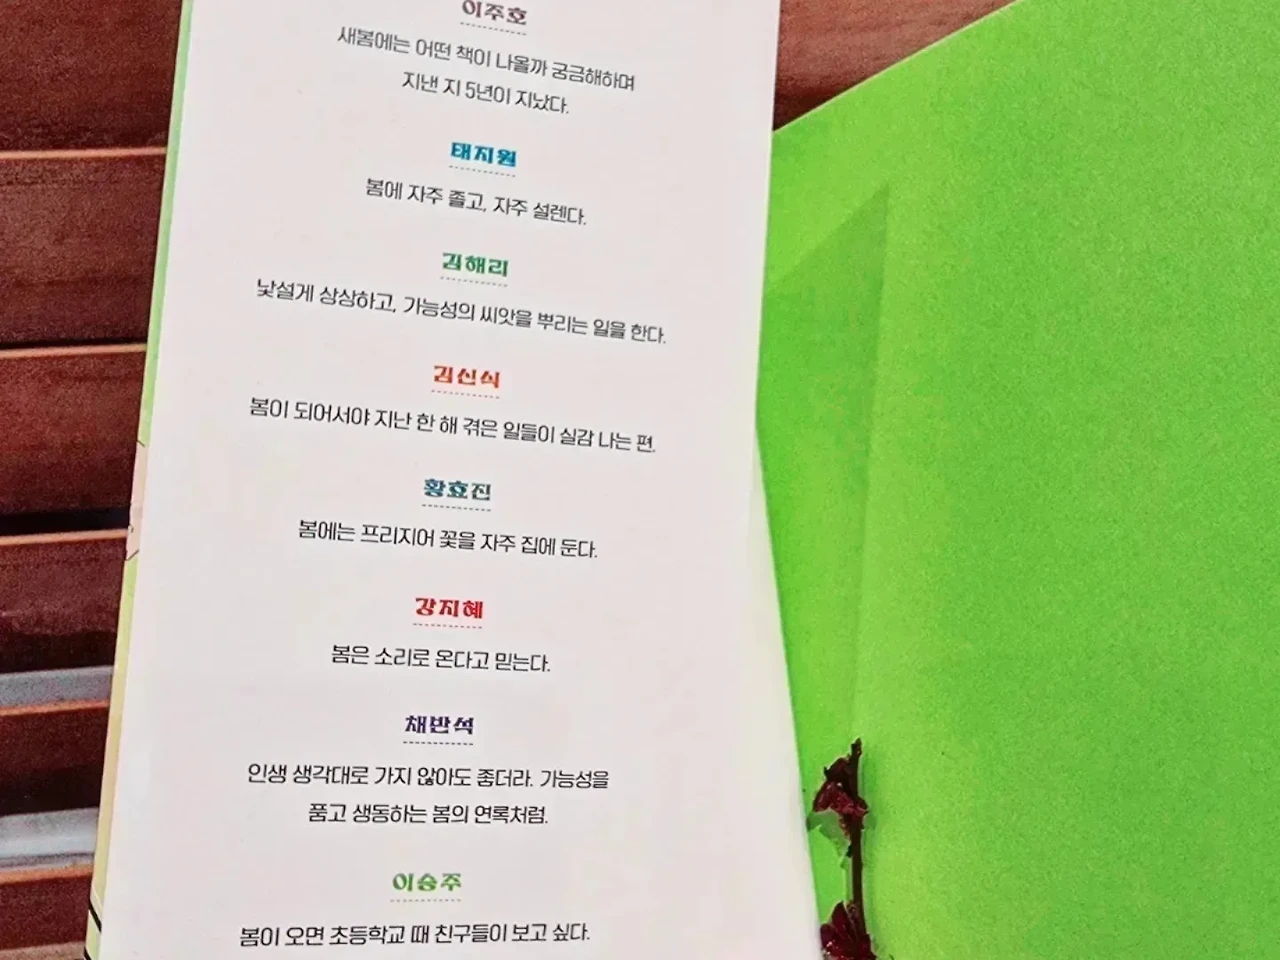 이주호
새봄에는 어떤 책이 나올까 궁금해하며
지낸 지 5년이 지났다.
태지원
봄에 자주 졸고, 자주 설렌다.
김해리
낯설게 상상하고, 가능성의 씨앗을 뿌리는 일을 한다.
김신식
봄이 되어서야 지난 한 해 겪은 일들이 실감 나는 편.
황효진
봄에는 프리지어 꽃을 자주 집에 둔다.
강지혜
봄은 소리로 온다고 믿는다.
채반석
인생 생각대로 가지 않아도 좋더라. 가능성을
품고 생동하는 봄의 연록처럼.
이승주
봄이 오면 초등학교 때 친구들이 보고 싶다.